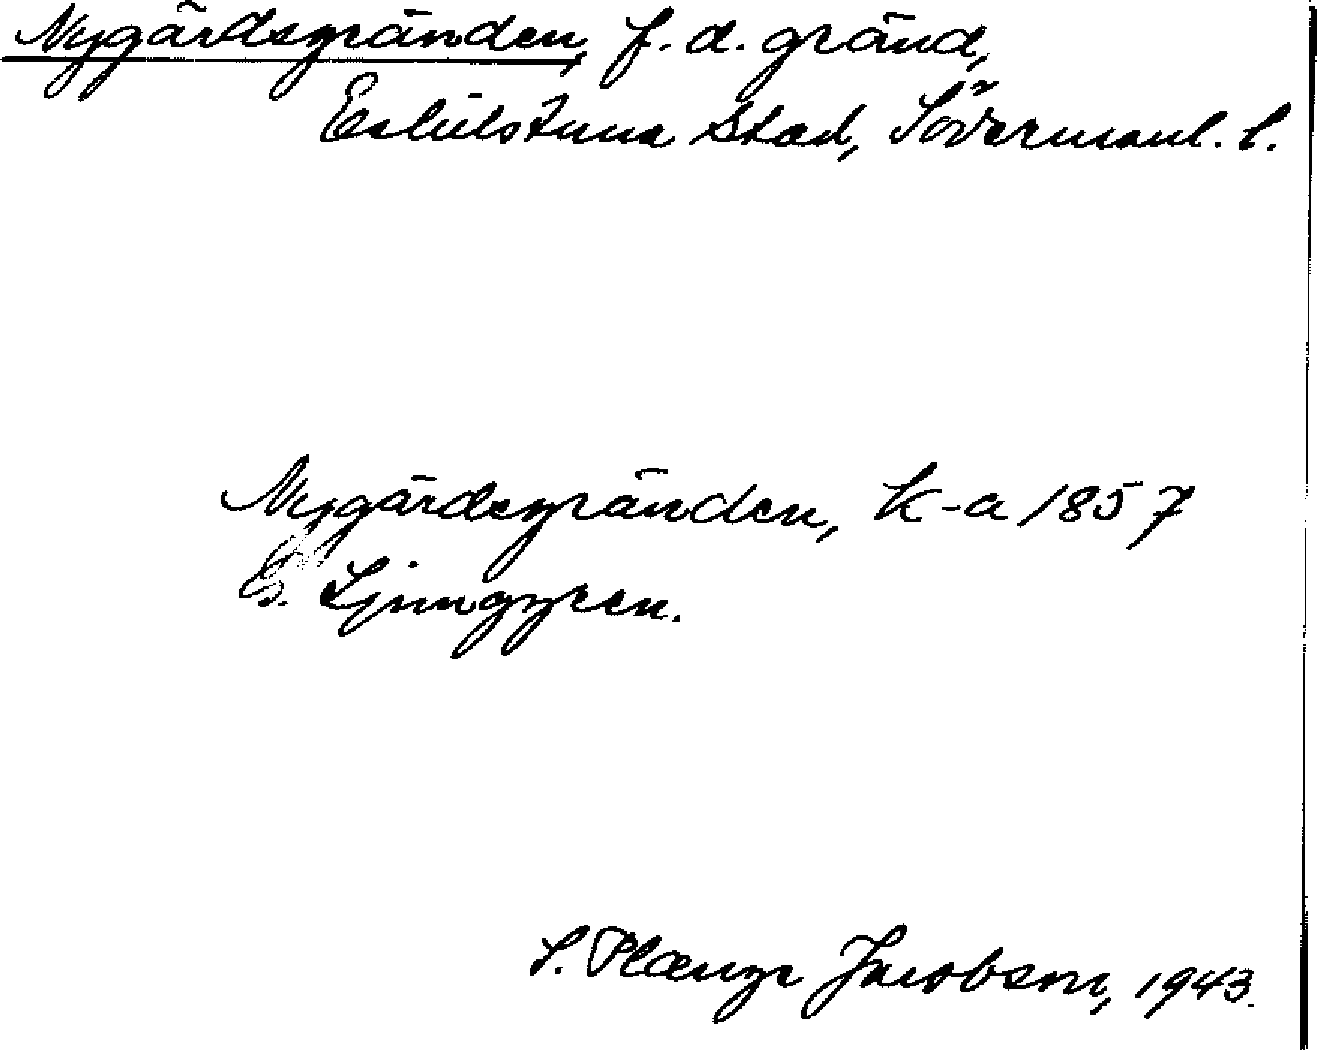 Nygårdsgränden, f. d. gränd,
Eskilstuna stad, Södermanl. l.
Nygårdsgränden, K-a 1857
G. Ljunggren.
S. Plænge Jacobson, 1943.